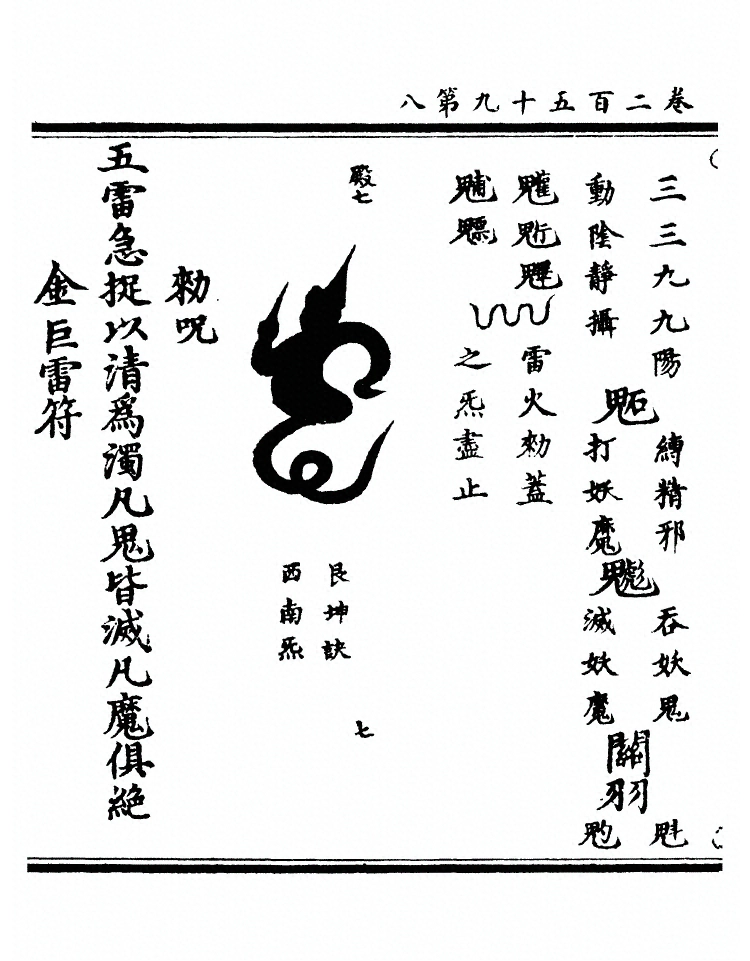 卷二百五十九第八
三三九九陽
動陰靜攝
縛精邪
打妖魔
吞妖鬼
滅妖魔
關羽
魁
魓
雷火勑蓋
魒
之炁盡止
殿七
艮坤訣
西南炁
七
勑呪
五雷急捉以清為濁凡鬼皆滅凡魔俱絕
金巨雷符